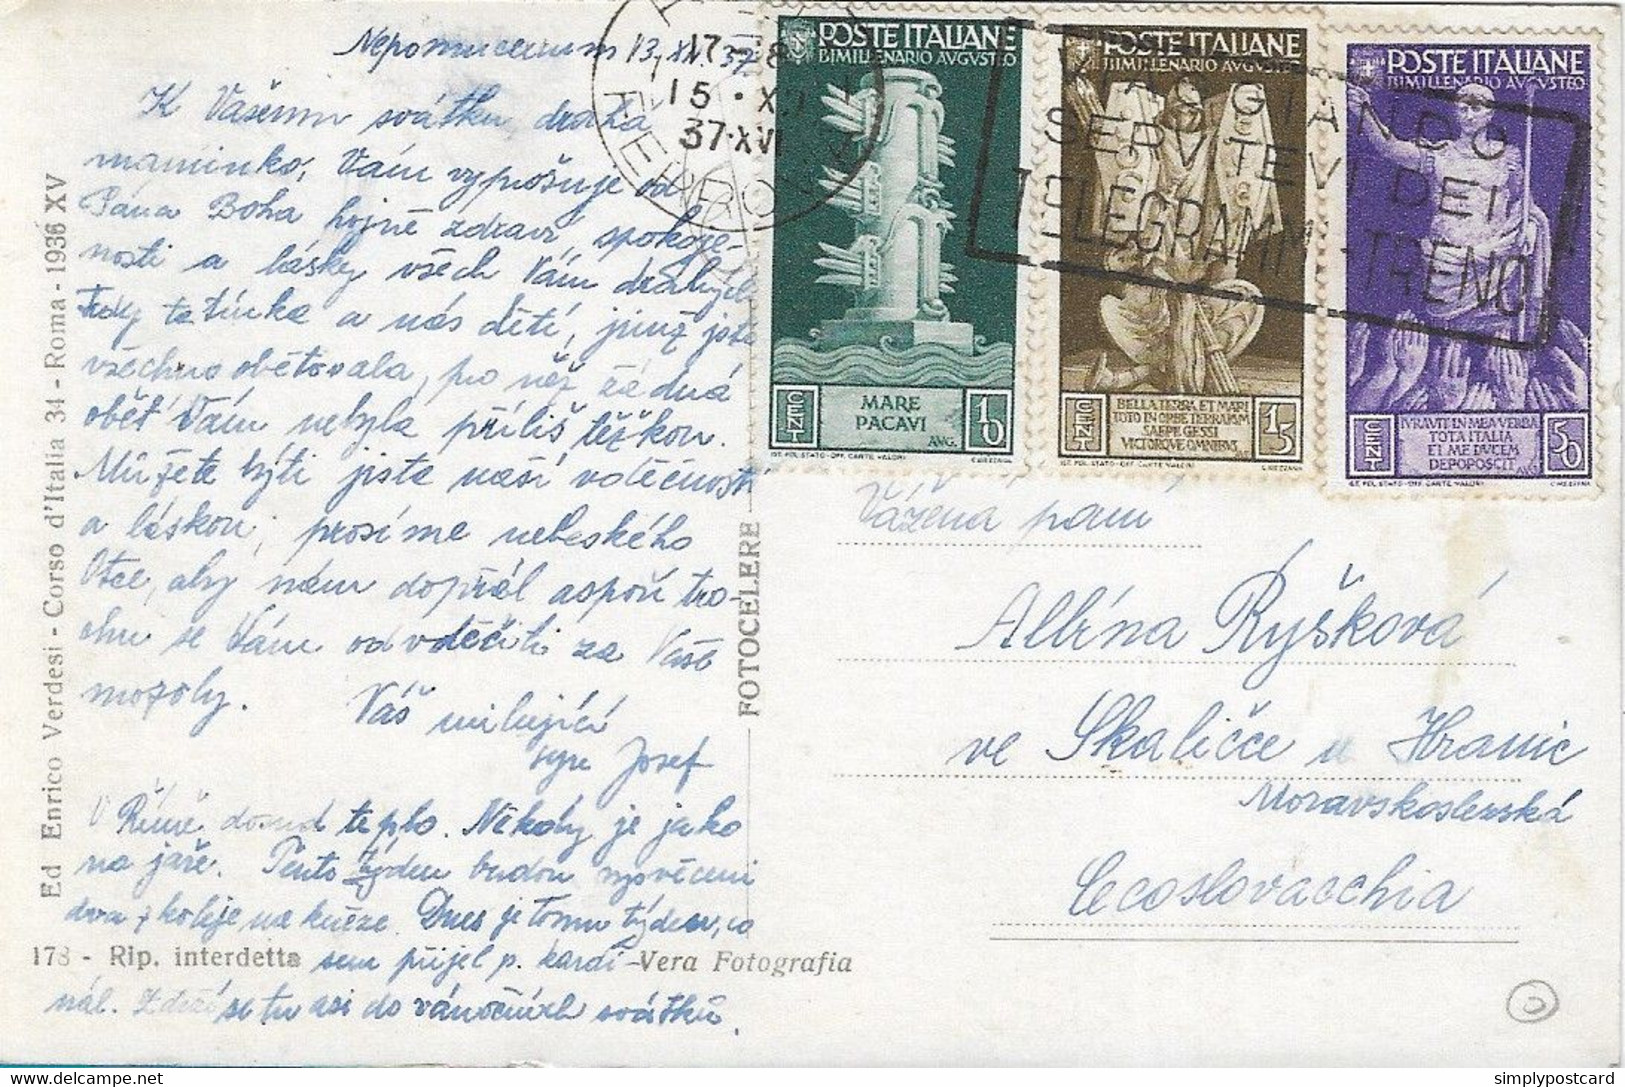 Nepomucenum 13. XII. 37
K Vašemu svátku drahá
maminko, Vám vyprošuje od
Pána Boha hojně zdraví, spokoje-
nosti a lásky všech Vám drahých
tatínka a nás dětí, jimž jste
všechno obětovala, pro něž žádná
oběť Vám nebyla příliš těžkou.
Můžete býti jista naší vděčností
a láskou, prosíme nebeského
Otce, aby nám dopřál aspoň tro-
chu se Vám odvděčiti za Vaše
mozoly. Váš milující
syn Josef
V Římě dosud teplo. Někdy je jako
na jaře. Tento týden budou vysvěceni
dva z koleje na kněze. Dnes je tomu týden, co
sem přijel p. kardi-
nál. Zdrží se tu asi do vánočních svátků.
Ed Enrico Verdesi - Corso d'Italia 34 - Roma - 1936 XV
178 - Rip. interdetta
Vera Fotografia
FOTOCELERE
17-18
15 · XII
37·XVI
FERROVIA
VIAGGIANDO
SERVITEVI DEI
TELEGRAMMI-TRENO
POSTE ITALIANE
BIMILLENARIO AVGVSTEO
MARE
PACAVI
AVG.
CENT 10
IST. POL. STATO-OFF. CARTE VALORI
C.MEZZANA
POSTE ITALIANE
BIMILLENARIO AVGVSTEO
BELLA TERRA ET MARI
TOTO IN ORBE TERRARVM
SAEPE GESSI
VICTORQVE OMNIBVS
CENT 15
IST. POL. STATO-OFF. CARTE VALORI
C.MEZZANA
POSTE ITALIANE
BIMILLENARIO AVGVSTEO
IVRAVIT IN MEA VERBA
TOTA ITALIA
ET ME DVCEM
DEPOPOSCIT AVG.
CENT 50
IST. POL. STATO-OFF. CARTE VALORI
C.MEZZANA
Vážená paní
Albína Ryšková
ve Skaličce u Hranic
Moravskoslezská
Cecoslovacchia
simplypostcard